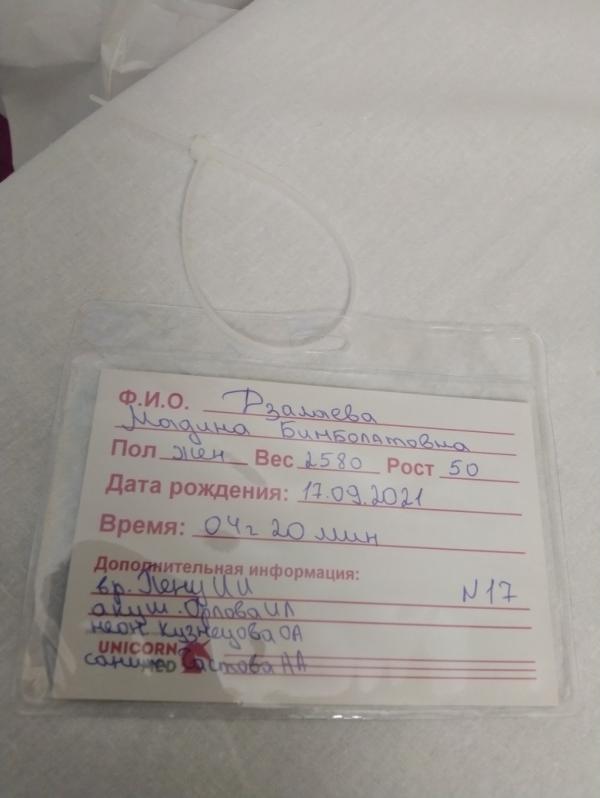 Ф.И.О. Дзалаева
Мадина Бимболатовна
Пол жен Вес 2580 Рост 50
Дата рождения: 17.09.2021
Время: 04г 20 мин
Дополнительная информация:
вр. Пену И И N17
акуш. Орлова И Л
неон. Кузнецова О А
UNICORN
MED
санит Гастова А А